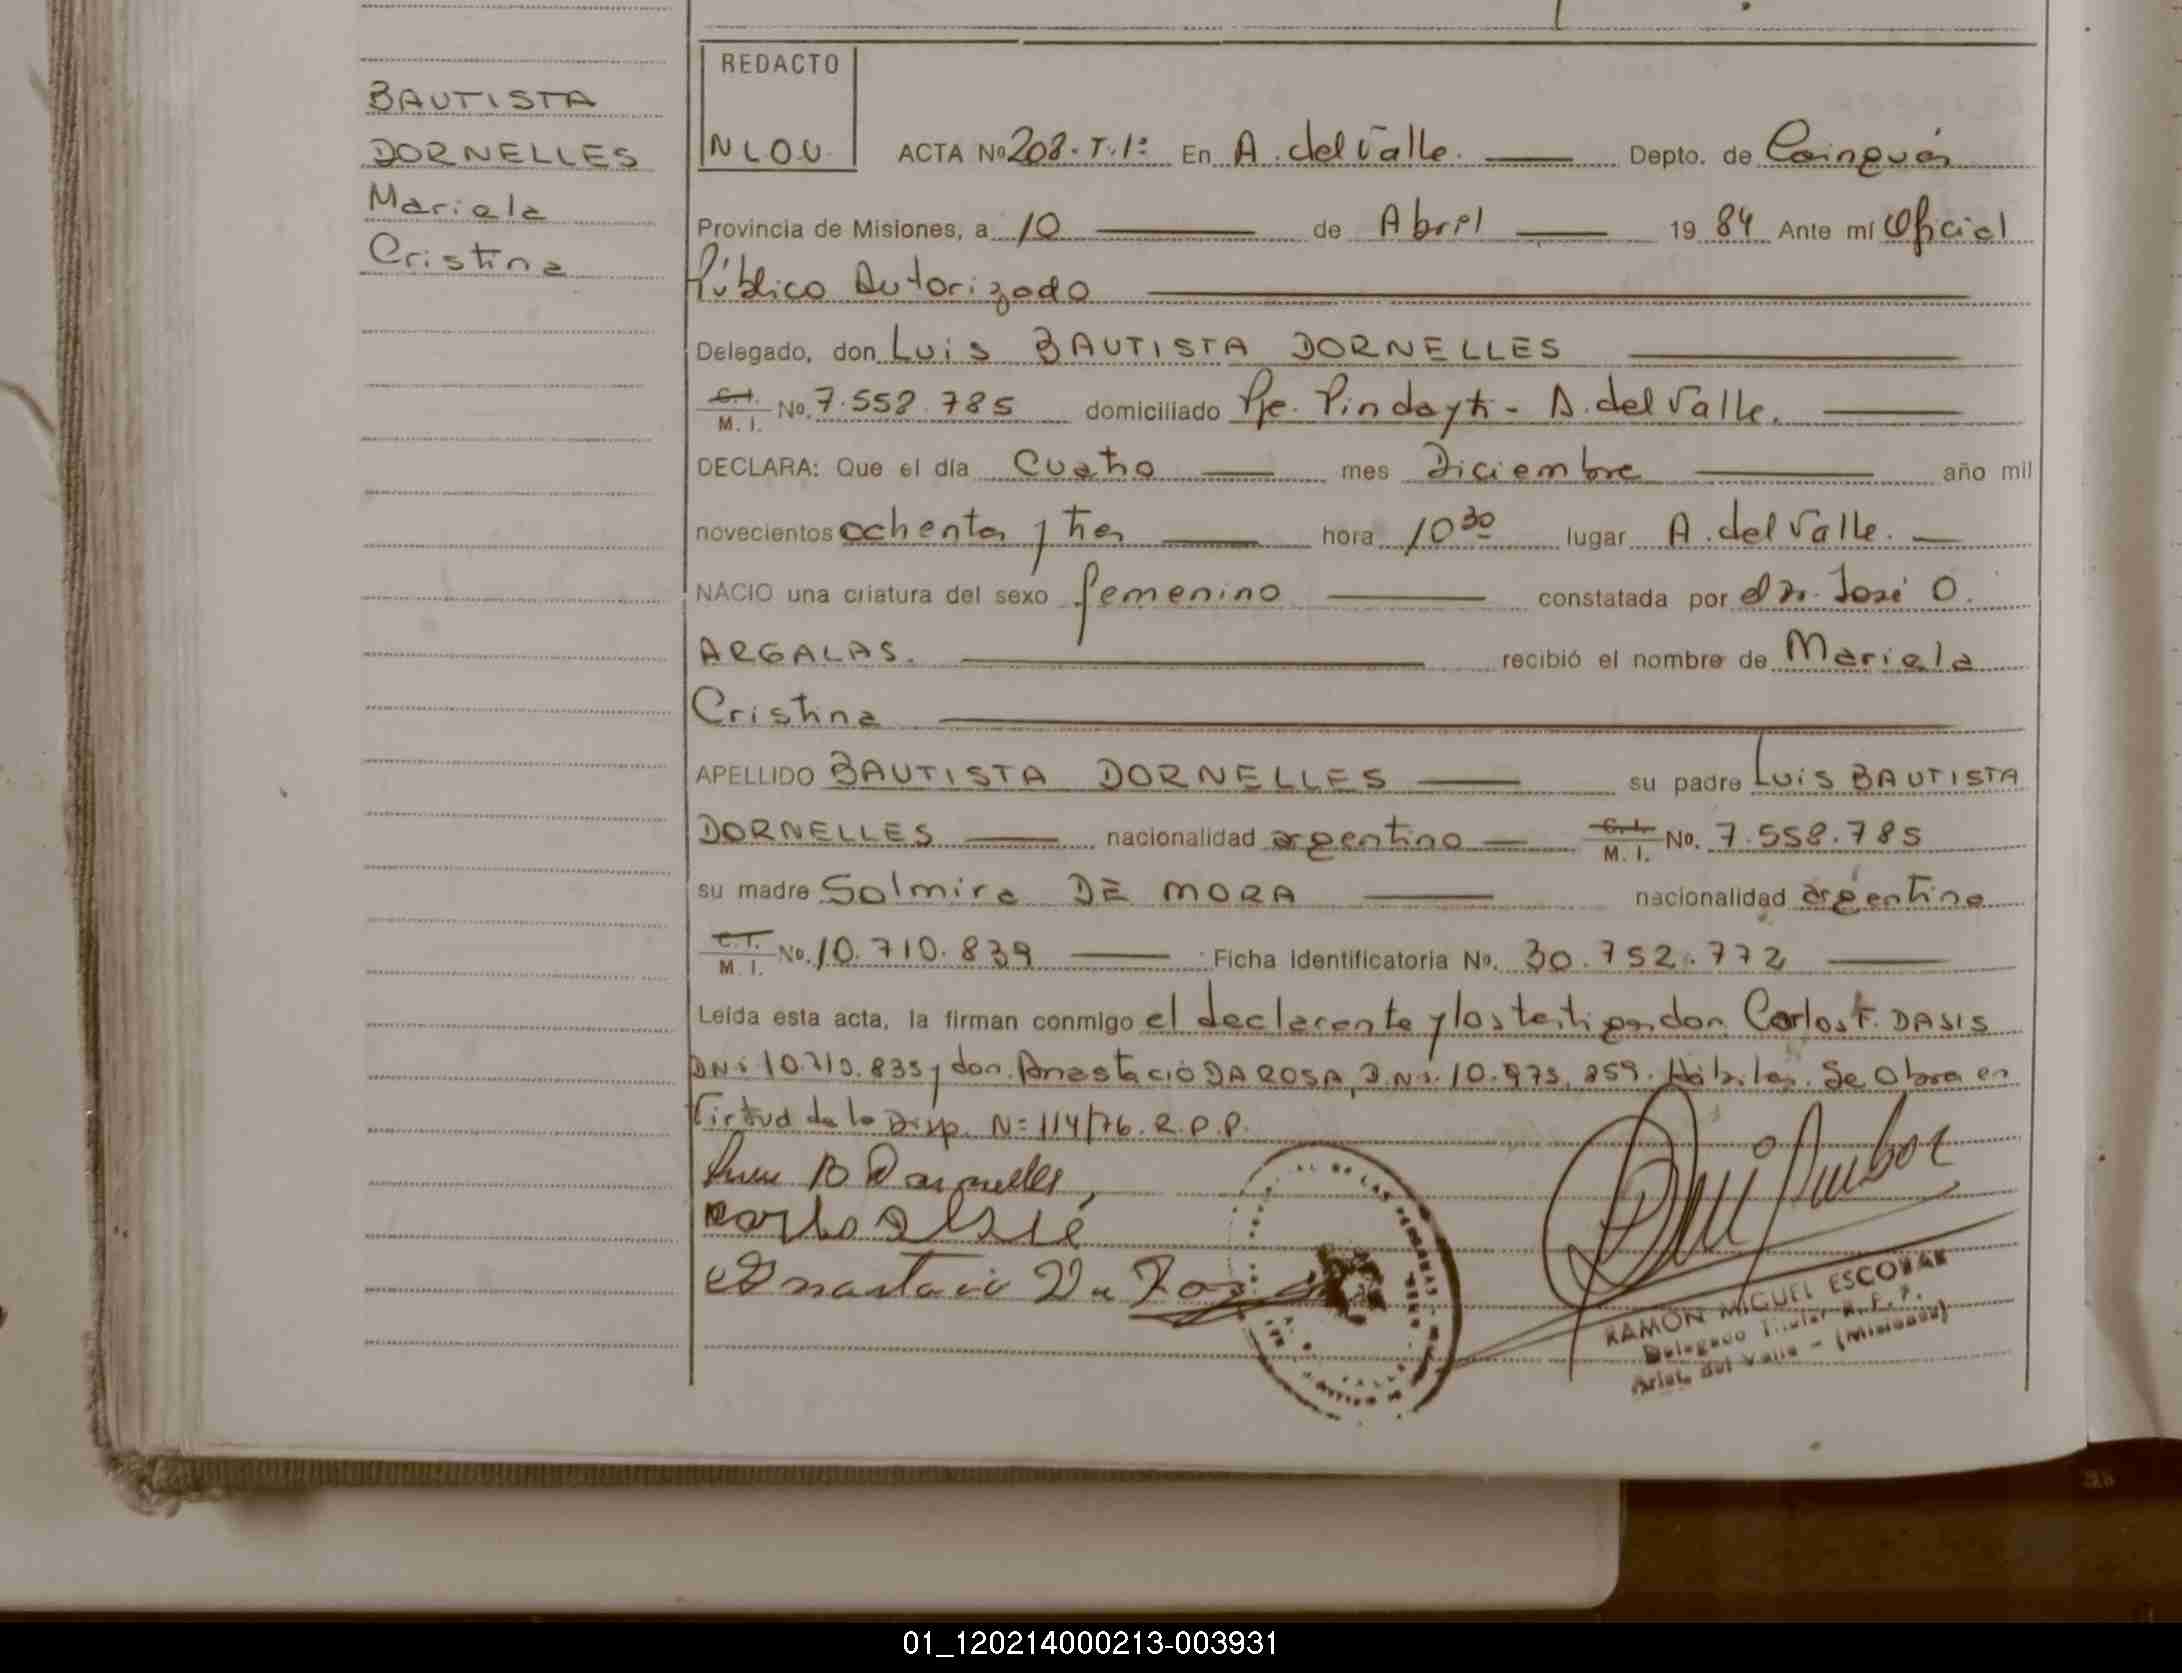 BAUTISTA
DORNELLES
Mariela
Cristina
REDACTO
N.L.O.U.
ACTA Nº 208. T.1º En A. del Valle. Depto. de Cainguás
Provincia de Misiones, a 10 de Abril 1984 Ante mí Oficial
Público Autorizado
Delegado, don Luis BAUTISTA DORNELLES
C.I. M. I. No. 7.558.785 domiciliado Pje. Pindayti - A. del Valle.
DECLARA: Que el día Cuatro mes Diciembre año mil
novecientos ochenta y tres hora 10 30 lugar A. del Valle.
NACIO una criatura del sexo femenino constatada por el Dr. José O.
ARGALAS. recibió el nombre de Mariela
Cristina
APELLIDO BAUTISTA DORNELLES su padre Luis BAUTISTA
DORNELLES nacionalidad argentino C.I. M. I. No. 7.558.785
su madre Solmira DE MORA nacionalidad argentina
C.I. M. I. No. 10.710.839 Ficha Identificatoria No. 30.752.772
Leída esta acta, la firman conmigo el declarante y los testigos don Carlos F. DASIS
DNI. 10.710.835 y don Anastacio DA ROSA, D.N.I. 10.973.859. Hábiles. Se Obra en
Virtud de la Disp. Nº 114/76. R.P.P.
Luis B Dornelles
Anastacio Da Rosa
RAMON MIGUEL ESCOBAR
Delegado Titular R. P. P.
Arist. del Valle - (Misiones)
01_120214000213-003931